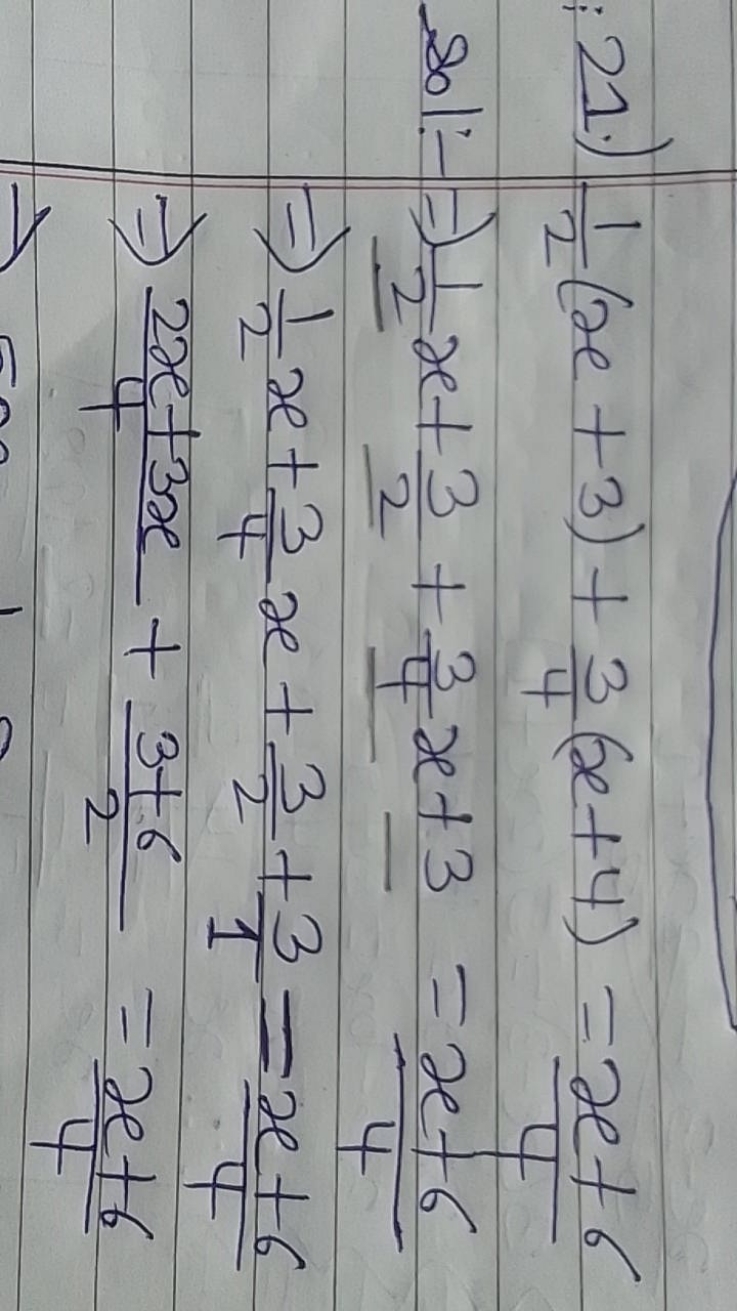 21.) 1/2(x + 3) + 3/4(x + 4) = x + 6/4
Sol:- ⇒ 1/2 x + 3/2 + 3/4 x + 3 = x + 6/4
⇒ 1/2 x + 3/4 x + 3/2 + 3/1 = x + 6/4
⇒ 2x + 3x/4 + 3 + 6/2 = x + 6/4